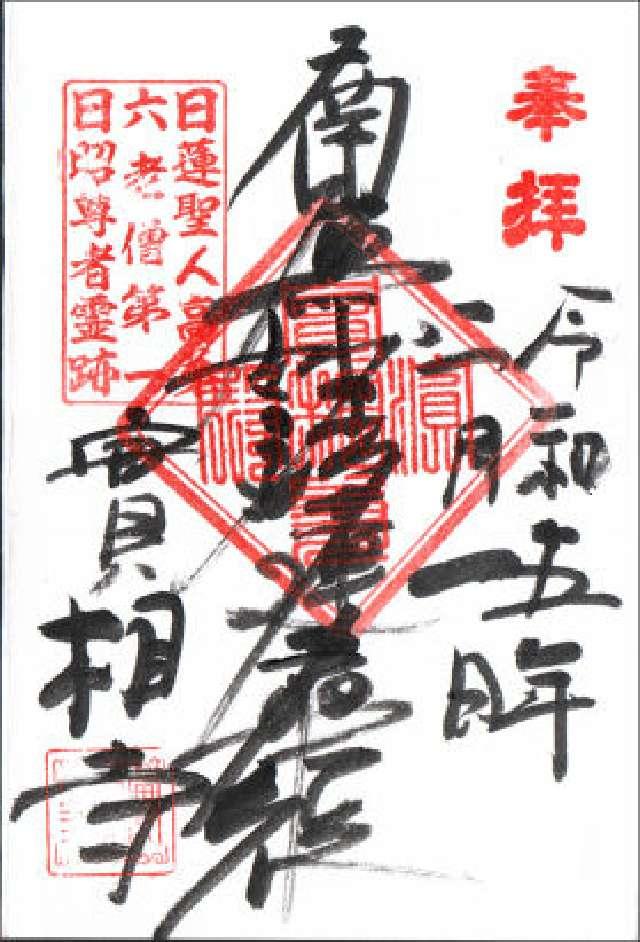 奉拝
令和五年
三月一日
南無妙法蓮華経
日蓮聖人高弟
六老僧第一
日昭尊者霊跡
實相寺